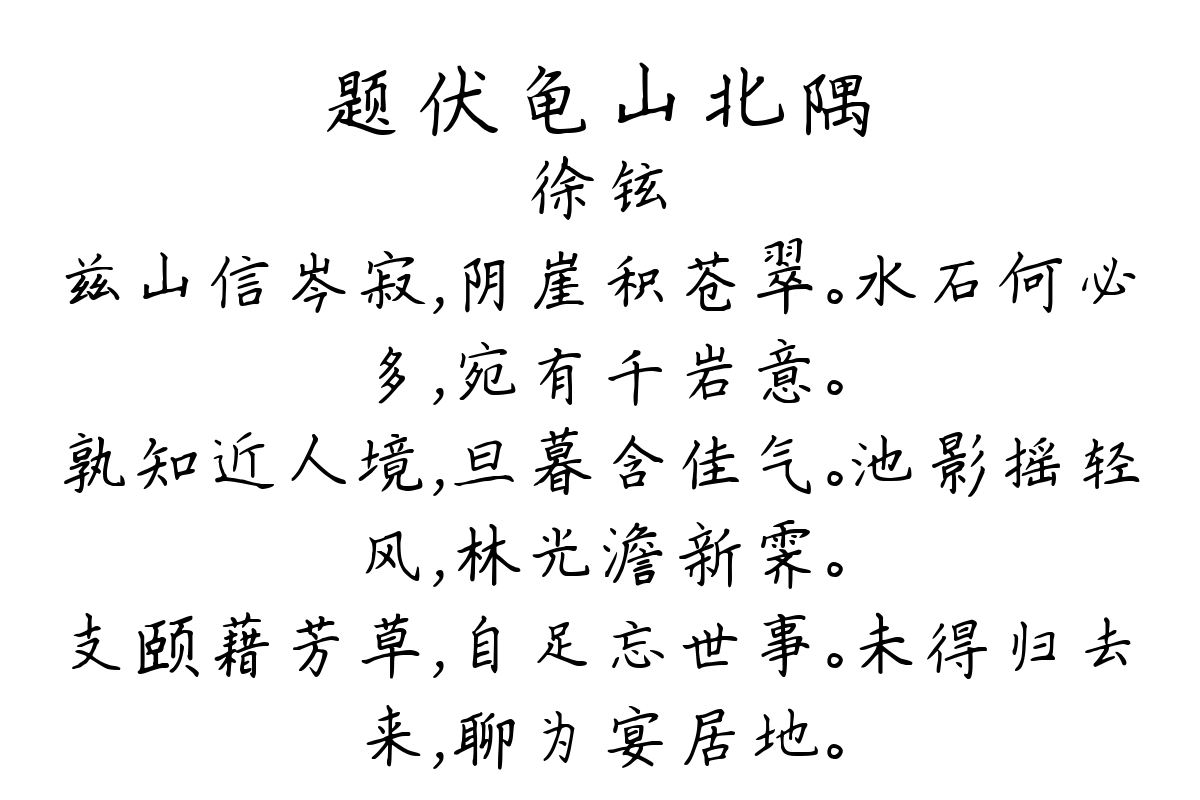 题伏龟山北隅
徐铉
兹山信岑寂,阴崖积苍翠。水石何必
多,宛有千岩意。
孰知近人境,旦暮含佳气。池影摇轻
风,林光澹新霁。
支颐藉芳草,自足忘世事。未得归去
来,聊为宴居地。